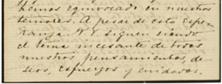 hemos equivocado en nuestros
temores. A pesar de esta espe-
ranza V. E. siguen siendo
el tema incesante de todos
nuestros pensamientos, de-
seos, esfuerzos y cuidados